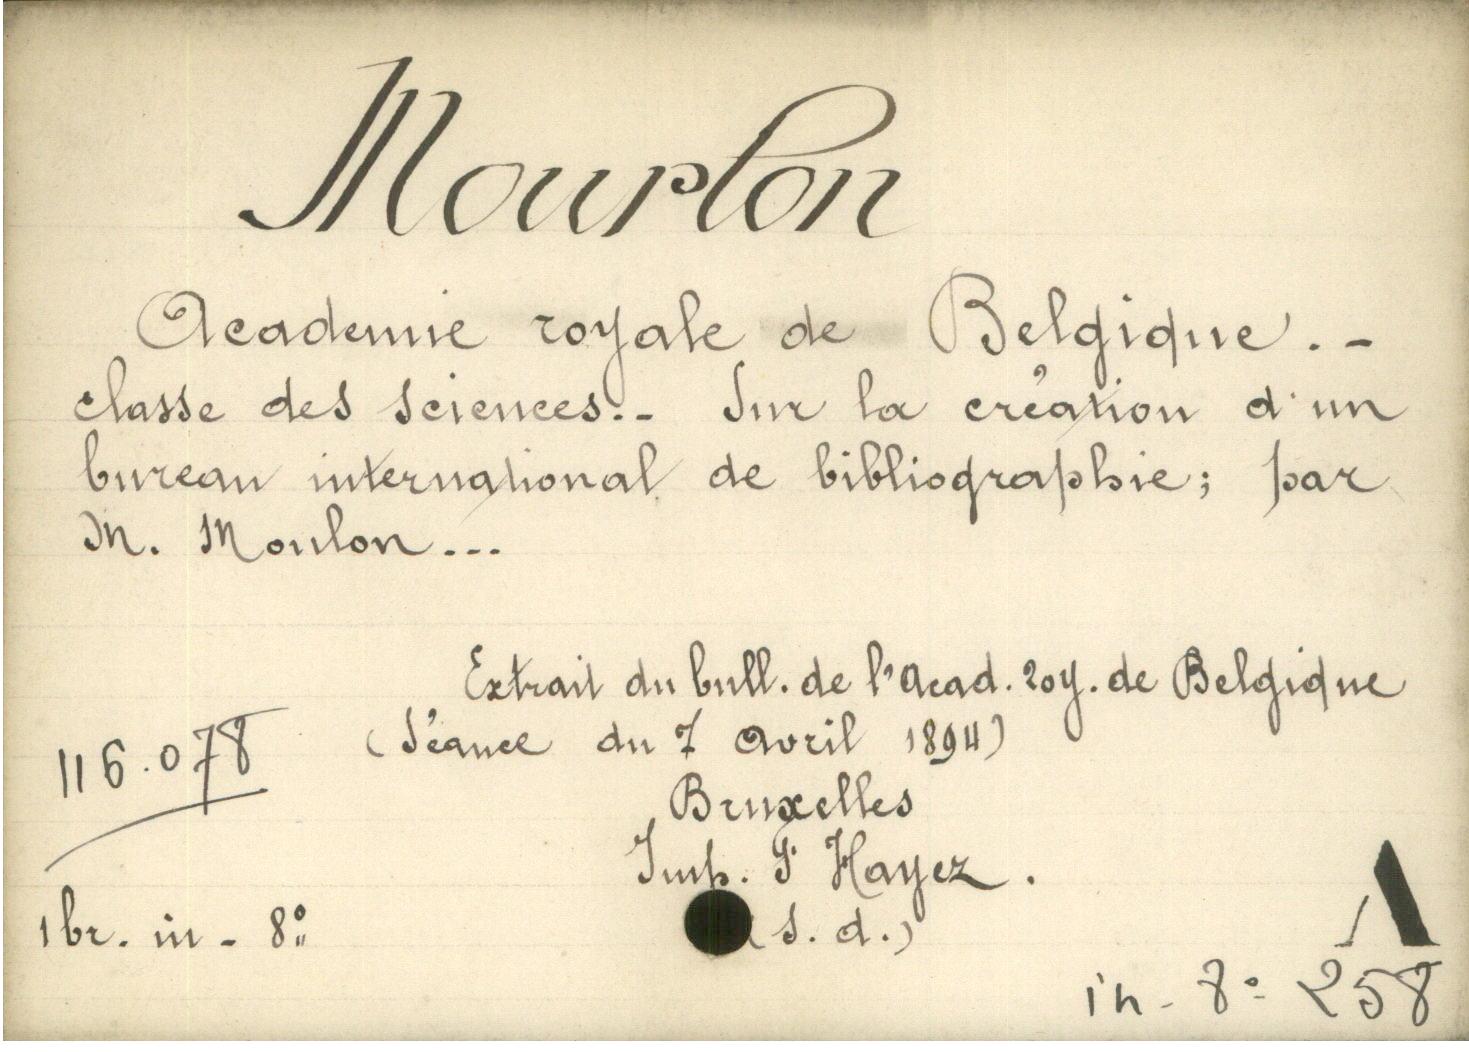 Mourlon
Academie royale de Belgique. -
classe des sciences. - Sur la création d'un
bureau international de bibliographie; par
M. Moulon...
Extrait du bull. de l'Acad. roy. de Belgique
(Séance du 7 Avril 1894)
116.078
Bruxelles
Imp. F Hayez.
1 br. in - 8°
(s. d.)
A
in - 8° 258